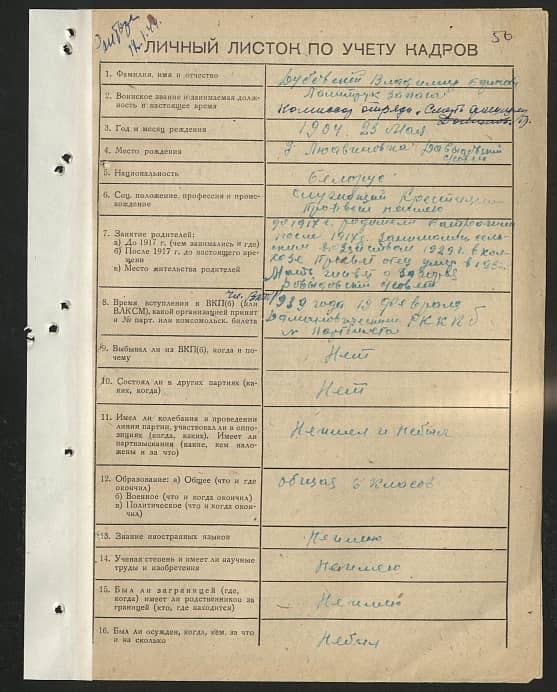 50
12.1.44.
ЛИЧНЫЙ ЛИСТОК ПО УЧЕТУ КАДРОВ
1. Фамилия, имя и отчество
Владимир
2. Воинское звание и занимаемая долж-
ность в настоящее время
Политрук запаса
Комиссар отряда „Смерть
3. Год и месяц рождения
1904. 23 мая
4. Место рождения
5. Национальность
Белорус
6. Соц. положение, профессия и проис-
хождение
Служащий
7. Занятие родителей:
а) До 1917 г. (чем занимались и где)
б) После 1917 г. до настоящего вре-
мени
в) Место жительства родителей
до 1917 г. родители
после 1917 г. занимались сель-
ским хозяйством 1929 г. в кол-
хозе отец умер в
Мать живёт
8. Время вступления в ВКП(б) (или
ВЛКСМ), какой организацией принят
и № парт. или комсомольск. билета
1939 года 19 февраля
РККПБ
№ партбилета
9. Выбывал ли из ВКП(б), когда и по-
чему
Нет
10. Состоял ли в других партиях (ка-
ких, когда)
Нет
11. Имел ли колебания в проведении
линии партии, участвовал ли в оппо-
зициях (когда, каких). Имеет ли
партвзыскания (какие, кем нало-
жены и за что)
Неимел и небыл
12. Образование: а) Общее (что и где
окончил)
б) Военное (что и когда окончил)
в) Политическое (что и когда окон-
чил)
Общая 6 класов
13. Знание иностранных языков
Неимею
14. Ученая степень и имеет ли научные
труды и изобретения
Неимею
15. Был ли заграницей (где,
когда) имеет ли родственников за
границей (кто, где находится)
Неимею
16. Был ли осужден, когда, кем, за что
и на сколько
Небыл